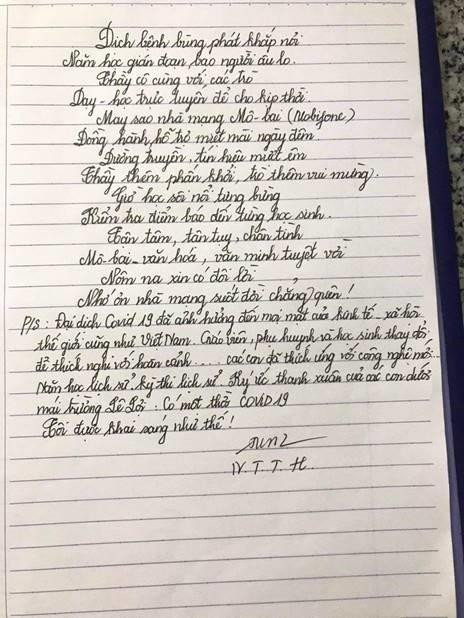 Dịch bệnh bùng phát khắp nơi
Năm học gián đoạn bao người âu lo.
Thầy cô cùng với các trò
Dạy - học trực tuyến để cho kịp thời
May sao nhà mạng Mô-bai (Mobifone)
Đồng hành, hỗ trợ miệt mài ngày đêm.
Đường truyền, tín hiệu mượt êm
Thầy thêm phấn khởi, trò thêm vui mừng.
Giờ học sôi nổi tưng bừng
Kiểm tra điểm báo đến từng học sinh.
Tận tâm, tận tụy, chân tình
Mô-bai - văn hoá, văn minh tuyệt vời
Nôm na xin có đôi lời
Nhớ ơn nhà mạng suốt đời chẳng quên!
P/s: Đại dịch Covid 19 đã ảnh hưởng đến mọi mặt của kinh tế - xã hội
thế giới cũng như Việt Nam. Giáo viên, phụ huynh và học sinh thay đổi
để thích nghi với hoàn cảnh.... các con đã thích ứng với công nghệ mới..
Năm học lịch sử. Kỳ thi lịch sử. Ký ức thanh xuân của các con dưới
mái trường Lê Lợi. Có một thời COVID 19
Tôi được khai sáng như thế!
N. T. T. H